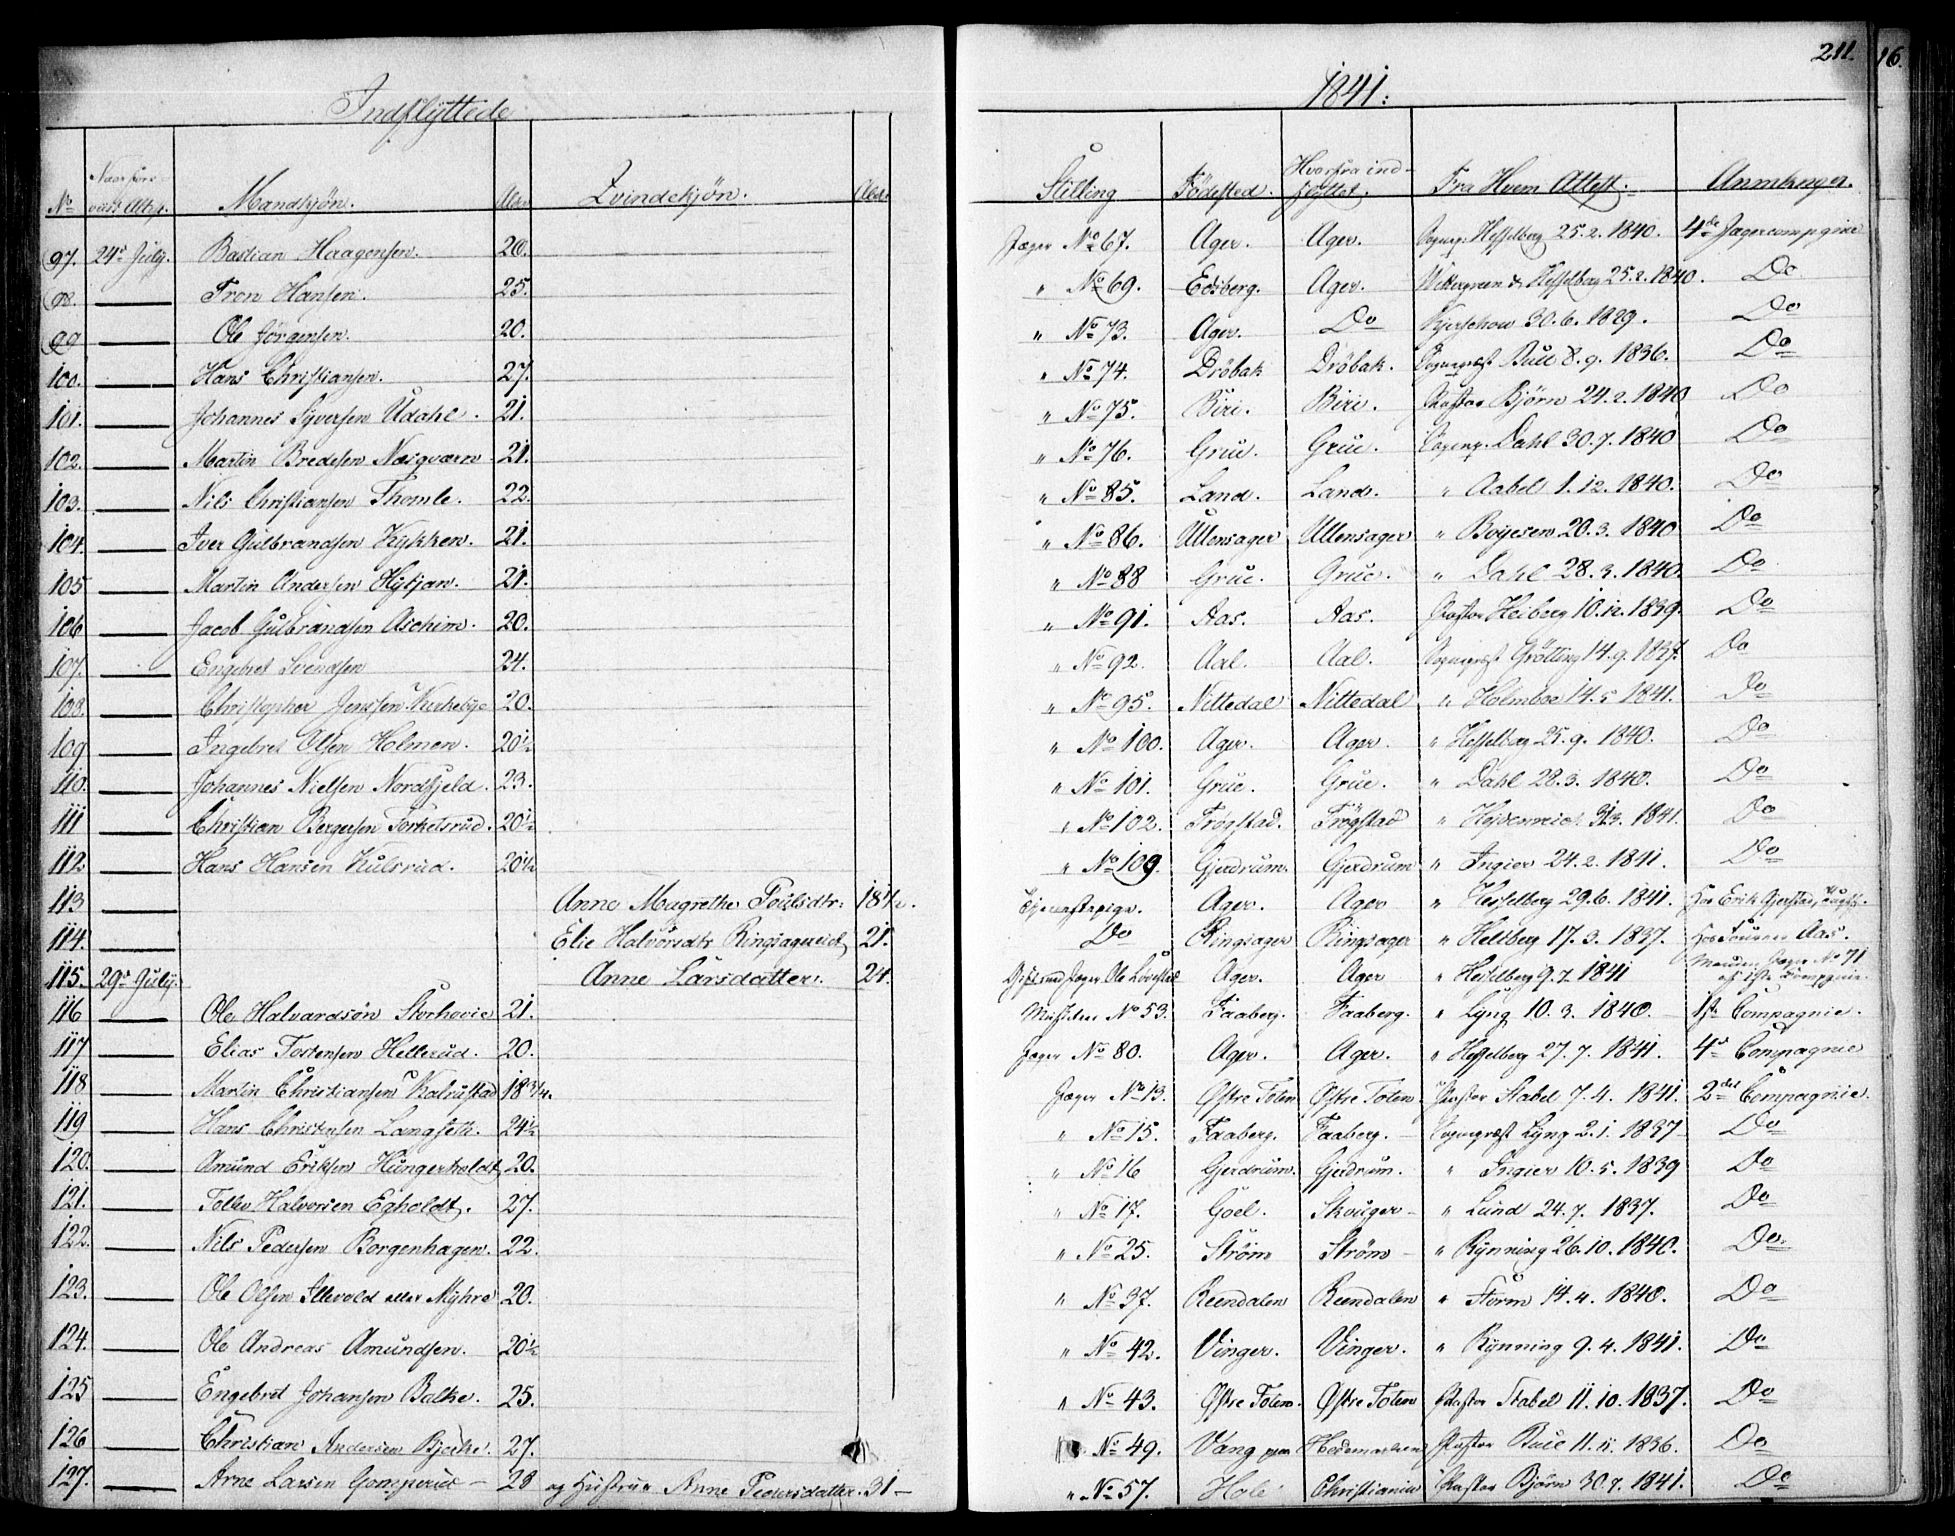 211.
16.
Indflyttede
1841:
No
Mandkjön.
Alder
Qvindekjön.
Alder
Stilling
Födested.
Hvorfra indflyttet.
Fra Hvem Attest.
Anmknger.
97. 24de July. Bastian Haagensen. 20. Jæger No 67. Ager. Ager. Sognep. Hesselberg 25.2.1840. 4de Jagercompgnie
98. — Tron Hansen. 25. " No 69. Edsberg. Ager. Wettergreen & Hesselberg 25.2.1840. Do
99 — Ole Jörgensen. 20. " No 73. Ager. Do Kjerschow 30.6.1829. Do
100. — Hans Christiansen. 27. " No 74. Dröbak Dröbak. Sognepræst Bull 8.9.1836. Do
101. — Johannes Syversen Udahl. 21. " No 75. Biri. Biri. Pastor Björn 24.2.1840 Do
102. — Martin Bredesen Næsqværn 21. " No 76. Grue. Grue. Sognep. Dahl 30.7.1840 Do
103. — Nils Christiansen Thomle. 22. " No 85. Land. Land. " Aabel 1.12.1840. Do
104. — Iver Gulbrandsen Kykken. 21. " No 86. Ullensager Ullensager " Boyesen 20.3.1840 Do
105 — Martin Andersen Hytjan. 21. " No 88 Grue. Grue. " Dahl 28.3.1840. Do
106 — Jacob Gulbrandsen Aschim. 20. " No 91. Aas. Aas. Pastor Heiberg 10.12.1839. Do
107. — Engebret Svendsen 24. " No 92. Aal. Aal. Sognepræst Grötting 14.9.1837. Do
108. — Christopher Jensen Kirkebye 20. " No 95. Nittedal Nittedal " Holmboe 14.5 1841. Do
109 — Ingebret Olsen Holmen. 20½ " No 100. Ager. Ager. " Hesselberg 25.9.1840. Do
110. — Johannes Nielsen Nordfjeld. 23. " No 101. Grue. Grue. " Dahl 28.3.1840. Do
111 — Christian Bergersen Torkelsrud. 20½ " No 102. Frogstad. Frögstad " 1841. Do
112 — Hans Hansen Kulsrud. 20½ " No 109. Gjerdrum. Gjerdrum " Ingier 24.2.1841. Do
113 — Anne Magrethe Poulsdtr: 18½. Tjenestepige. Ager. Ager " Hesselberg 29.6.1841. Hos Erik Gjerstad,
114. — Elie Halvorsdtr Ringsagereid 21. Do Ringsager Ringsager " Hellberg 17.3.1837. Hos Aas.
115. 29de July. Anne Larsdatter. 24. Gift med Jæger Ole Ager. Ager " Hesselberg 9.7.1841 Manden Jæger No 71 af 1ste Compgnie.
116 — Ole Halvardsön Storhovie 21. Musketeer No 53. Faaberg. Faaberg. " Lyng 10.3.1840. 1ste Compagnie.
117 — Elias Tostensen Hellerud. 20. Jæger No 80. Ager. Ager. " Hesselberg 27.7.1841. 4de Compagnie
118 — Martin Christiansen Kalrustad 18¾. Jæger No 13. Østre Toten Østre Toten Pastor Stabel 7.4.1841. 2det Compagnie.
119 — Hans Christensen Langseth. 24½ " No 15. Faaberg. Faaberg. — Sognepræst Lyng 2.1.1837 Do
120. — Amund Eriksen Hungerholdt 20. " No 16 Gjerdrum. Gjerdrum. " Ingier 10.5.1839 Do
121. — Tollev Halvorsen Egholdt. 27. " No 17. Goel. Skouger — " Lund 24.7.1837. Do
122. — Nils Pedersen Borgenhagen. 22. " No 25. Ström Ström — " Rynning 26.10.1840. Do
123. — Ole Olsen Illevold eller Myhre 20. " No 37. Reendalen Reendalen " Storm 14.4.1840. Do
124. — Ole Andreas Amundsen. 20½ " No 42. Vinger. Vinger. " Rynning 9.4.1841. Do
125 — Engebret Johansen Balke. 25. " No 43. Østre Toten. Østre Toten Pastor Stabel 11.10.1837. Do
126 — Christian Andersen Bjerke. 27. No 49. Vang paa Hedemarken Pastor Bull 11.11.1836. Do
127. — Arne Larsen Gomperud — 28 og Hustrue Anne Pedersdatter. 31 — " No 57. Hole Christiania Pastor Björn 30.7.1841. Do